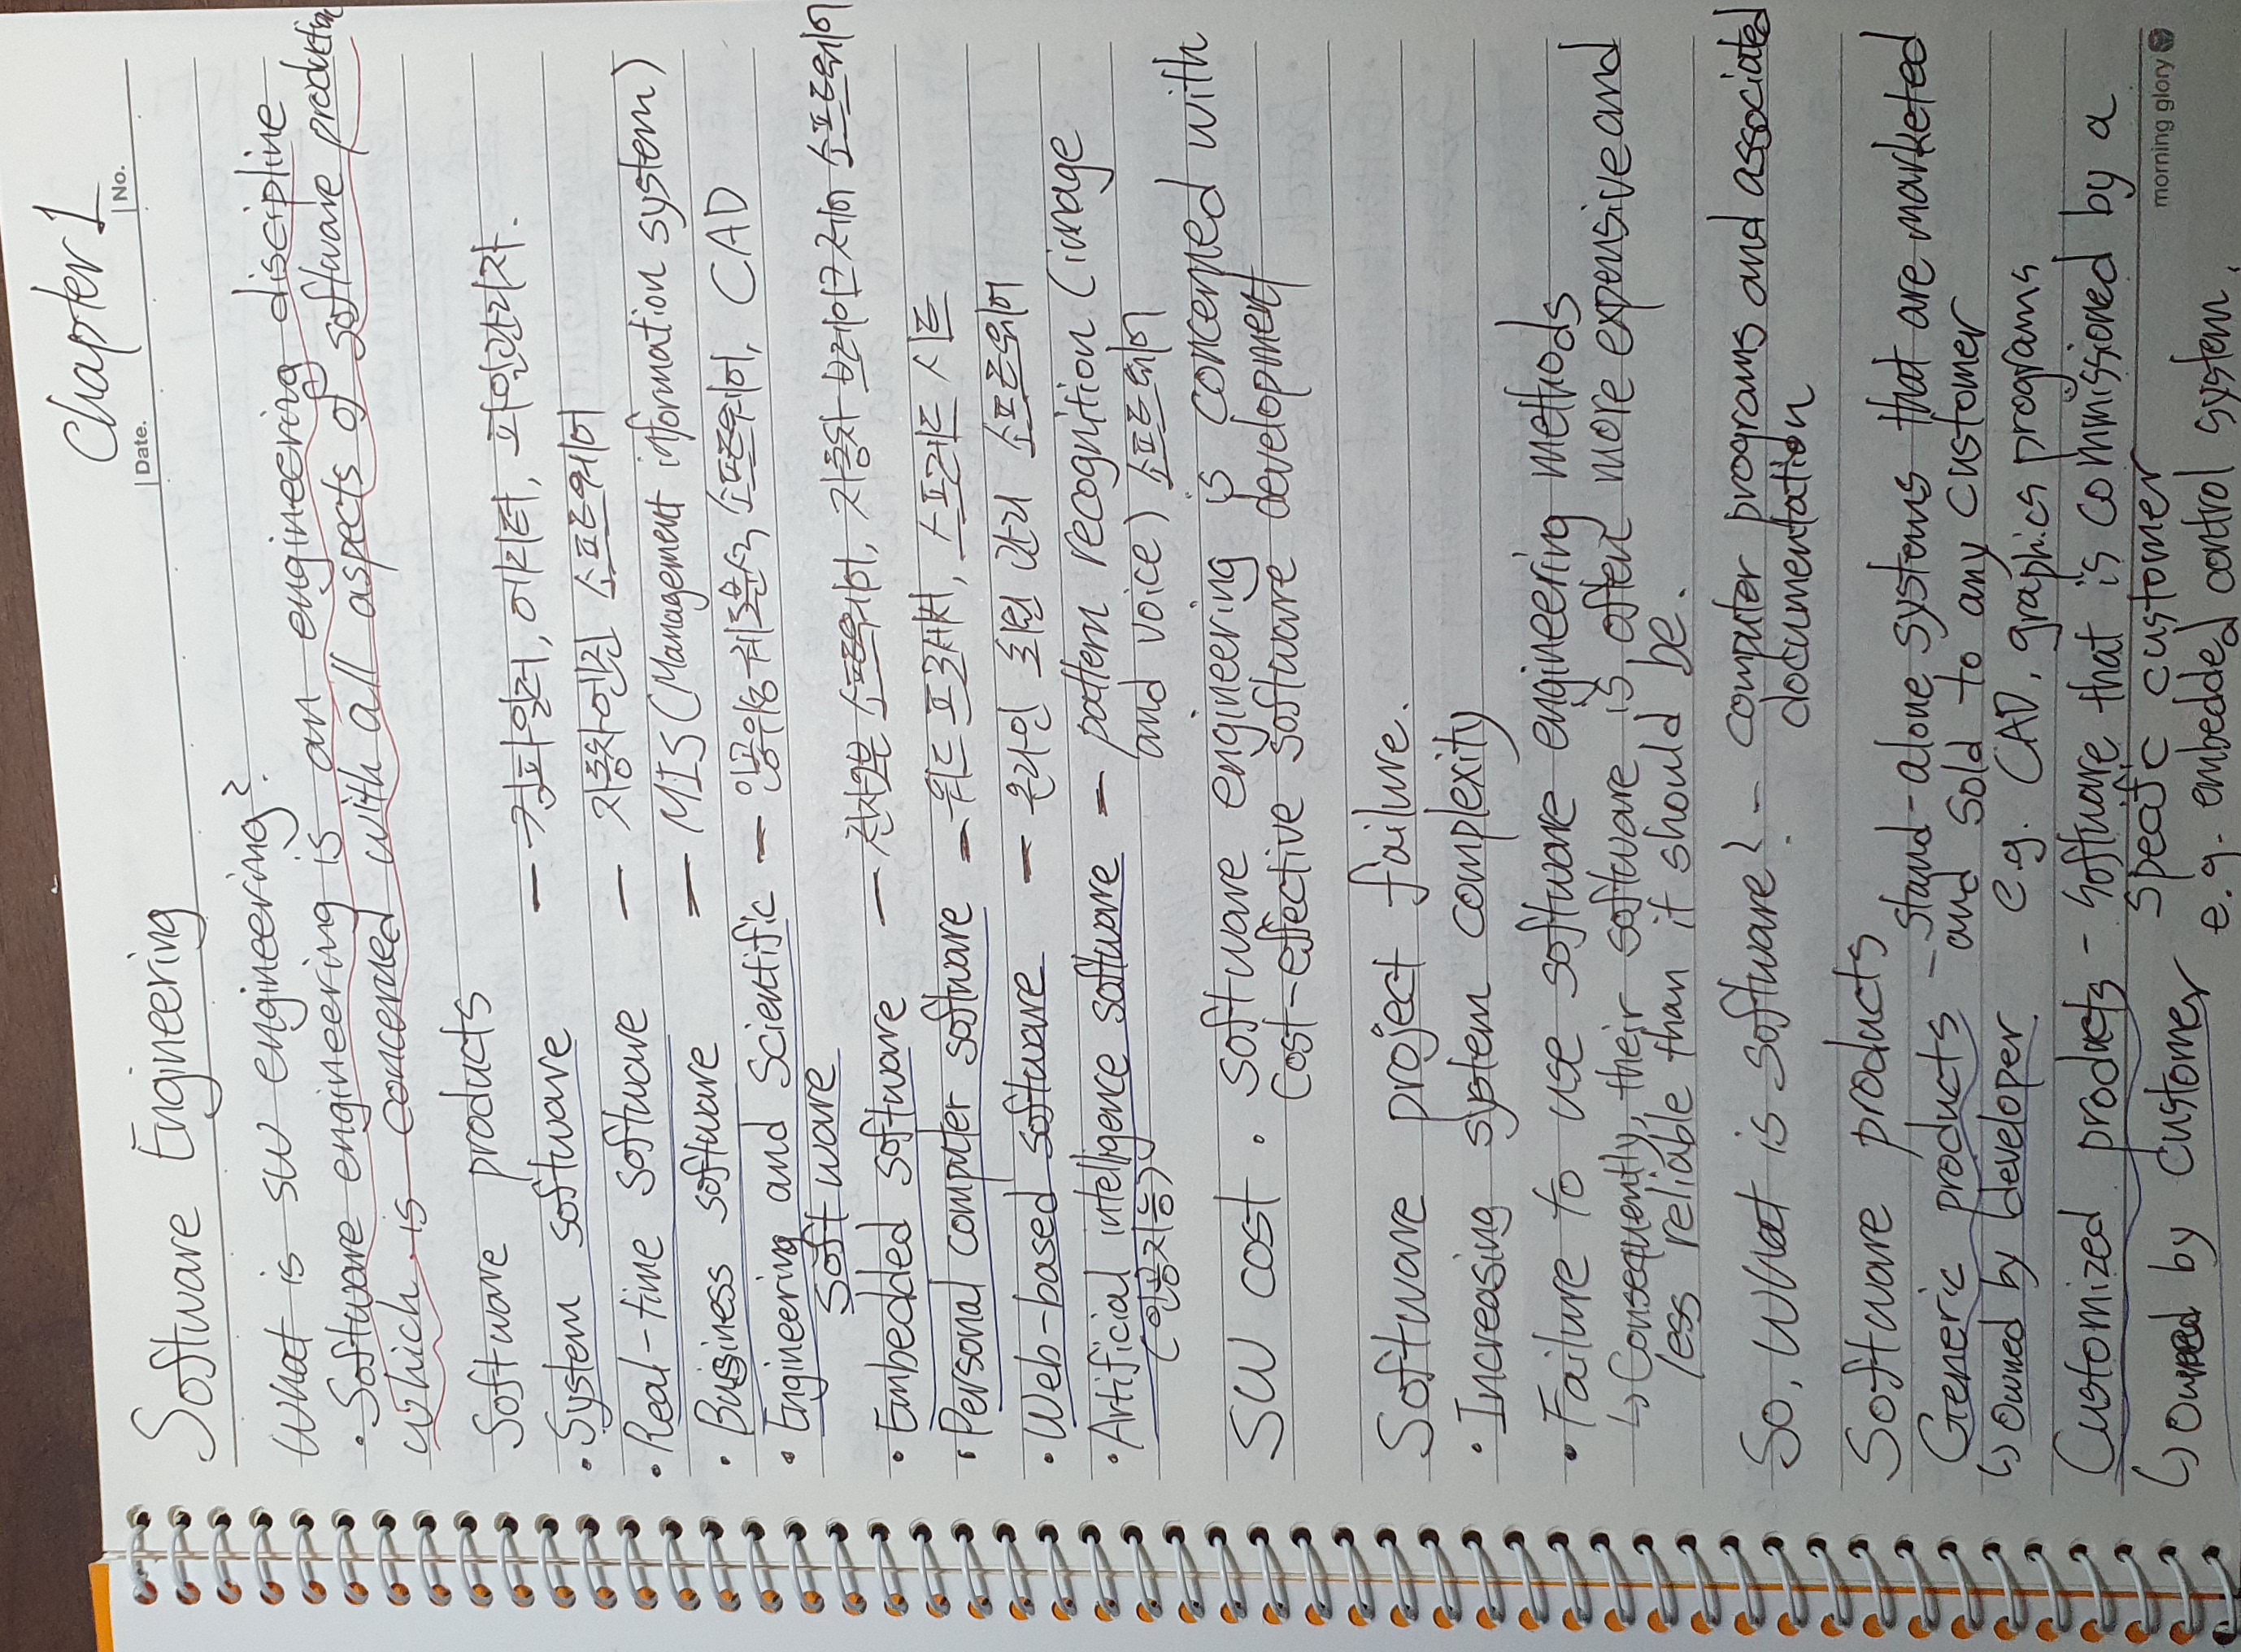 Chapter 1
Date.
No.
Software Engineering
What is SW engineering?
· Software engineering is an engineering discipline
which is concerned with all aspects of software production
Software products
· System software — 컴파일러, 에디터, 파일관리자.
· Real-time software — 자동차엔진 소프트웨어
· Business software — MIS (Management information system)
· Engineering and Scientific — 인공위성궤도분석 소프트웨어, CAD
software
· Embedded software — 전자오븐 소프트웨어, 자동차 브레이크제어 소프트웨어
· Personal computer software — 워드 프로세서, 스프레드 시트
· Web-based software — 온라인 회원 관리 소프트웨어
· Artificial intelligence software — pattern recognition (image
(인공지능) and voice) 소프트웨어
SW cost · software engineering is concerned with
cost-effective software development
Software project failure.
· Increasing system complexity
· Failure to use software engineering methods
↳ Consequently, their software is often more expensive and
less reliable than it should be.
So, What is software? - computer programs and associated
documentation
Software products
Generic products - stand-alone systems that are marketed
and sold to any customer
↳ Owned by developer e.g. CAD, graphics programs
Customized products - software that is commissioned by a
specific customer
↳ Owned by customer
e.g. embedded control system.
morning glory